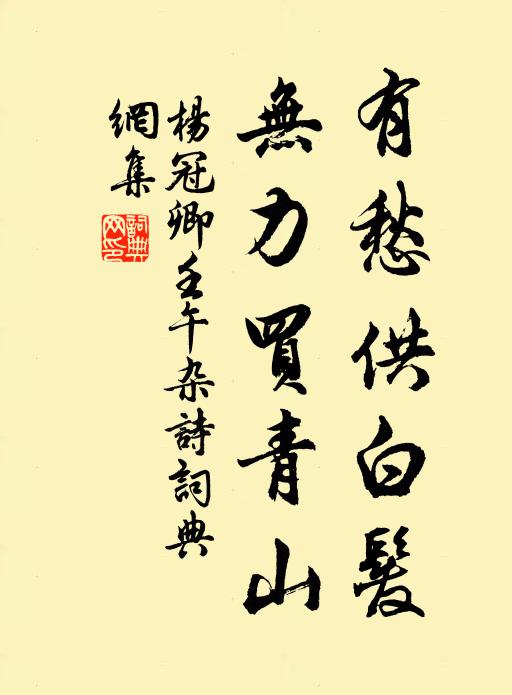 有愁供白髮
無力買青山
楊冠卿壬午杂詩詞典
網集
詞典
网印